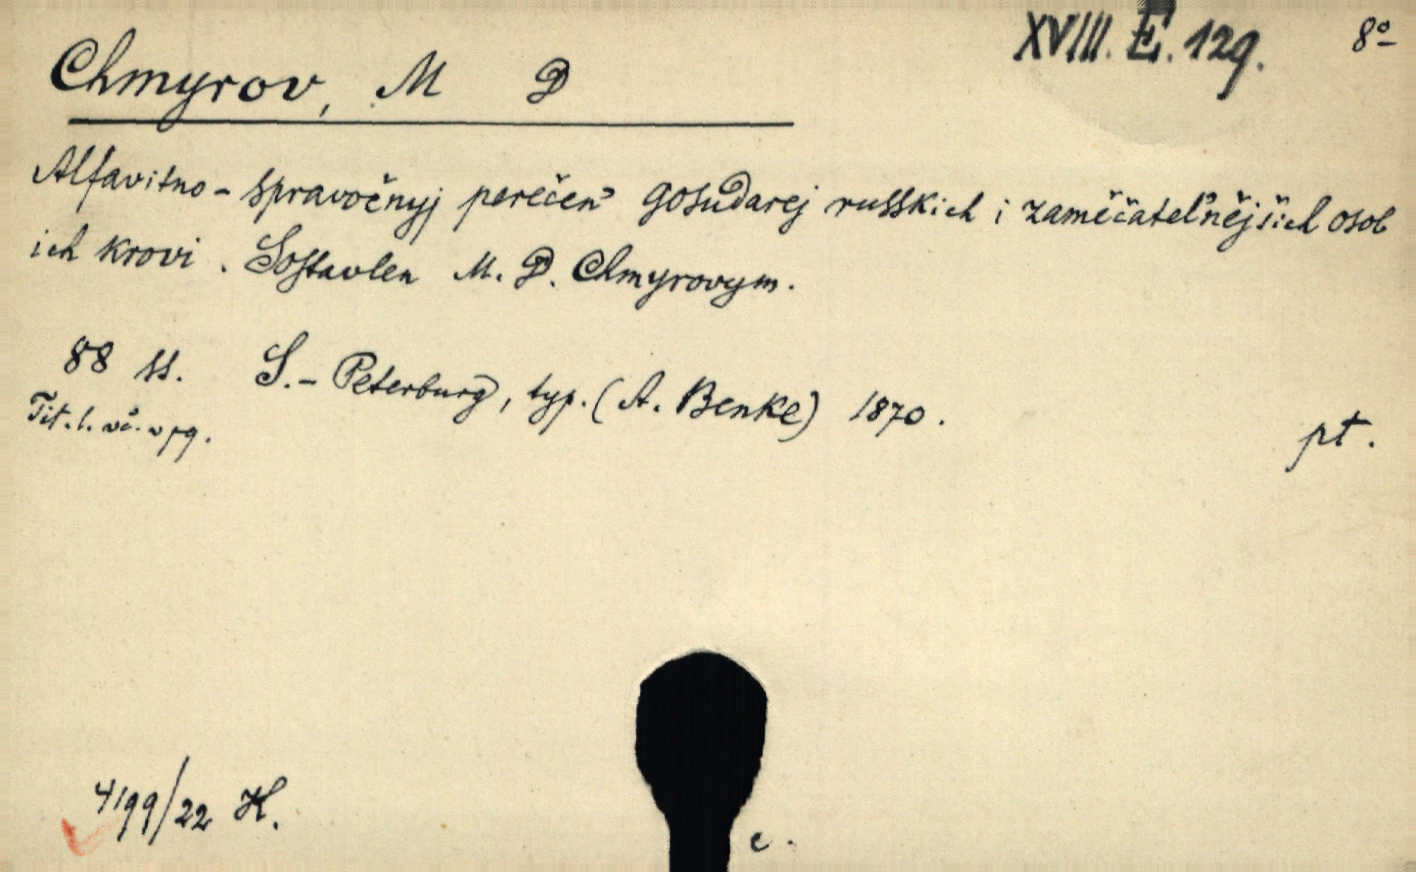 XVIII. E. 129. 8°
Chmyrov, M D
Alfavitno-spravočnyj perečeń gosudarej russkich i zaměčateľnějšich osob
ich krovi. Sostavlen M. D. Chmyrovym.
88 ss. S.-Peterburg, typ. (A. Benke) 1870.
Tit. l.
pt.
4199/22 H.
c.